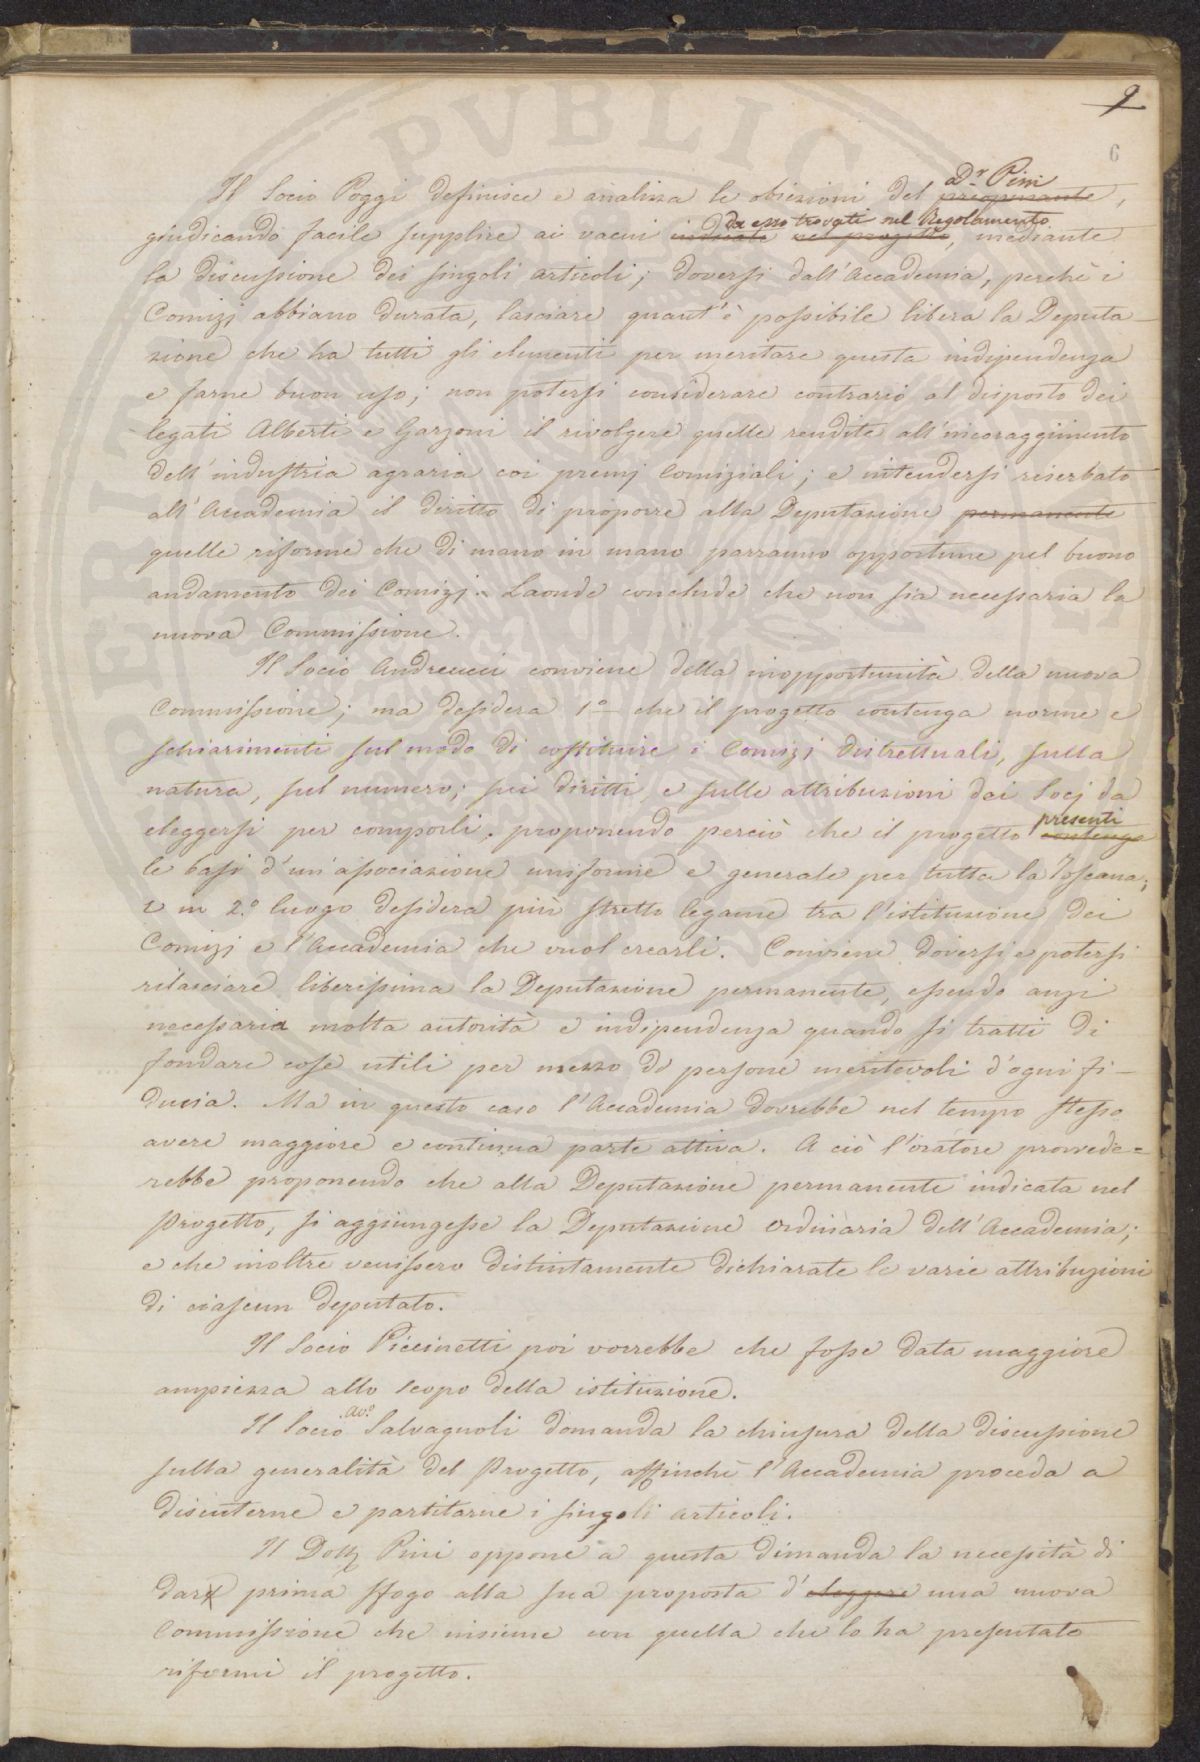 9
6
Il Socio Poggi definisce e analizza le obiezioni del preopinante D.r Pini,
giudicando facile supplire ai vacui indicati nel progetto da esso trovati nel Regolamento, mediante
la discussione dei singoli articoli; doversi dall'Accademia, perchè i
Comizj abbiano durata, lasciare quant'è possibile libera la Deputa-
zione che ha tutti gli elementi per meritare questa indipendenza
e farne buon uso; non potersi considerare contrario al disposto dei
legati Alberti e Garzoni il rivolgere quelle rendite all'incoraggimento
dell'industria agraria coi premj Comiziali; e intendersi riserbato
all'Accademia il diritto di proporre alla Deputazione permanente
quelle riforme che di mano in mano parranno opportune pel buono
andamento dei Comizj. Laonde conclude che non sia necessaria la
nuova Commissione.
Il Socio Andreucci conviene della inopportunità della nuova
Commissione; ma desidera 1.o che il progetto contenga norme e
schiarimenti sul modo di costituire i Comizj distrettuali, sulla
natura, sul numero, sui diritti e sulle attribuzioni dei Socj da
eleggersi per comporli, proponendo perciò che il progetto contenga presenti
le basi d'un'associazione uniforme e generale per tutta la Toscana;
e in 2.o luogo desidera più stretto legame tra l'istituzione dei
Comizj e l'Accademia che vuol crearli. Conviene doversi e potersi
rilasciare liberissima la Deputazione permanente, essendo anzi
necessaria molta autorità e indipendenza quando si tratti di
fondare cose utili per mezzo di persone meritevoli d'ogni fi-
ducia. Ma in questo caso l'Accademia dovrebbe nel tempo stesso
avere maggiore e continua parte attiva. A ciò l'oratore provvede-
rebbe proponendo che alla Deputazione permanente indicata nel
Progetto, si aggiungesse la Deputazione Ordinaria dell'Accademia;
e che inoltre venissero distintamente dichiarate le varie attribuzioni
di ciascun deputato.
Il Socio Piccinetti poi vorrebbe che fosse data maggiore
ampiezza allo scopo della istituzione.
Il Socio Av.o Salvagnoli domanda la chiusura della discussione
sulla generalità del Progetto, affinchè l'Accademia proceda a
discuterne e partitarne i singoli articoli.
Il Dott. Pini oppone a questa dimanda la necessità di
dar prima sfogo alla sua proposta d'eleggere una nuova
Commissione che insieme con quella che lo ha presentato
riformi il progetto.